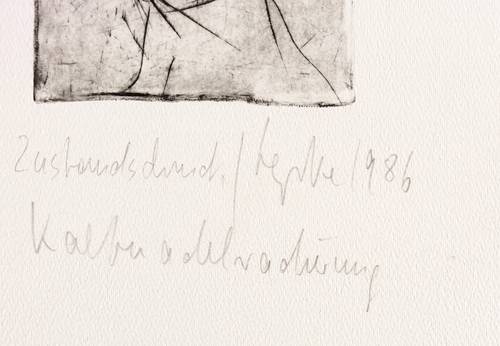 Zustandsdruck / 1986
Kaltnadelradierung